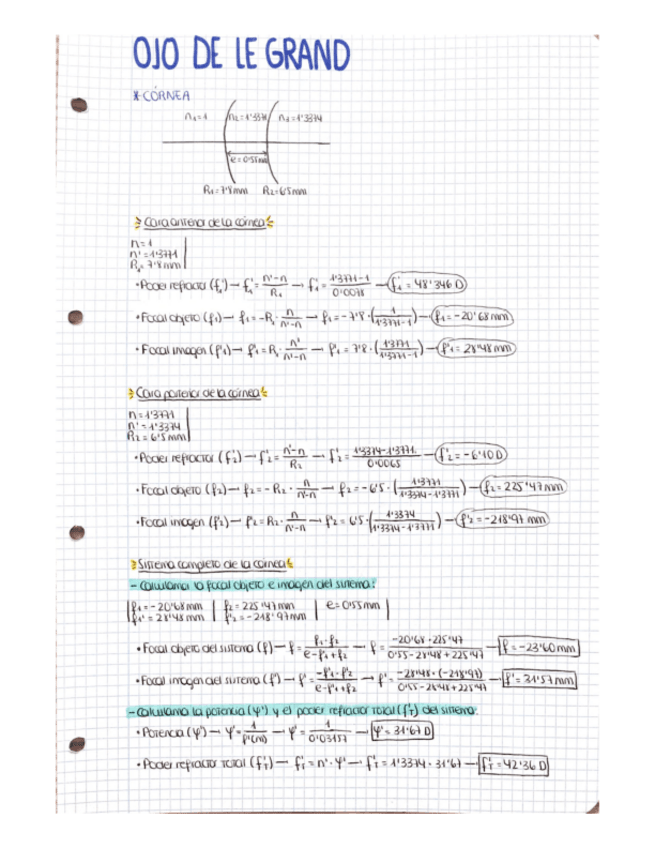 OJO DE LE GRAND
* CÓRNEA
n₁=1 n₂=1'3771 n₃=1'3374
e=0'55mm
R₁=7'8mm R₂=6'5mm
Cara anterior de la córnea
n=1
n'=1'3771
R₁=7'8mm
• Poder refractor (f'₁) → f'₁ = (n'-n)/R₁ → f'₁ = (1'3771-1)/0'0078 → f'₁ = 48'346 D
• Focal objeto (f₁) → f₁ = -R₁ · n/(n'-n) → f₁ = -7'8 · (1/(1'3771-1)) → f₁ = -20'68 mm
• Focal imagen (f'₁) → f'₁ = R₁ · n'/(n'-n) → f'₁ = 7'8 · (1'3771/(1'3771-1)) → f'₁ = 28'48 mm
Cara posterior de la córnea
n=1'3771
n'=1'3374
R₂=6'5mm
• Poder refractor (f'₂) → f'₂ = (n'-n)/R₂ → f'₂ = (1'3374-1'3771)/0'0065 → f'₂ = -6'10 D
• Focal objeto (f₂) → f₂ = -R₂ · n/(n'-n) → f₂ = -6'5 · (1'3771/(1'3374-1'3771)) → f₂ = 225'47 mm
• Focal imagen (f'₂) → f'₂ = R₂ · n'/(n'-n) → f'₂ = 6'5 · (1'3374/(1'3374-1'3771)) → f'₂ = -218'97 mm
Sistema completo de la córnea
- Calculamos la focal objeto e imagen del sistema:
f₁ = -20'68mm | f₂ = 225'47mm | e=0'55mm
f₁' = 28'48 mm | f'₂ = -218'97mm
• Focal objeto del sistema (f) → f = (f₁·f₂)/(e-f'₁+f₂) → f = (-20'68·225'47)/(0'55-28'48+225'47) → f = -23'60mm
• Focal imagen del sistema (f') → f' = (-f'₁·f'₂)/(e-f'₁+f₂) → f' = (-28'48·(-218'97))/(0'55-28'48+225'47) → f' = 31'57mm
- Calculamos la potencia (φ') y el poder refractor total (f'T) del sistema:
• Potencia (φ') → φ' = 1/f'(m) → φ' = 1/0'03157 → φ' = 31'67 D
• Poder refractor total (f'T) → f'T = n' · φ' → f'T = 1'3374 · 31'67 → f'T = 42'36 D